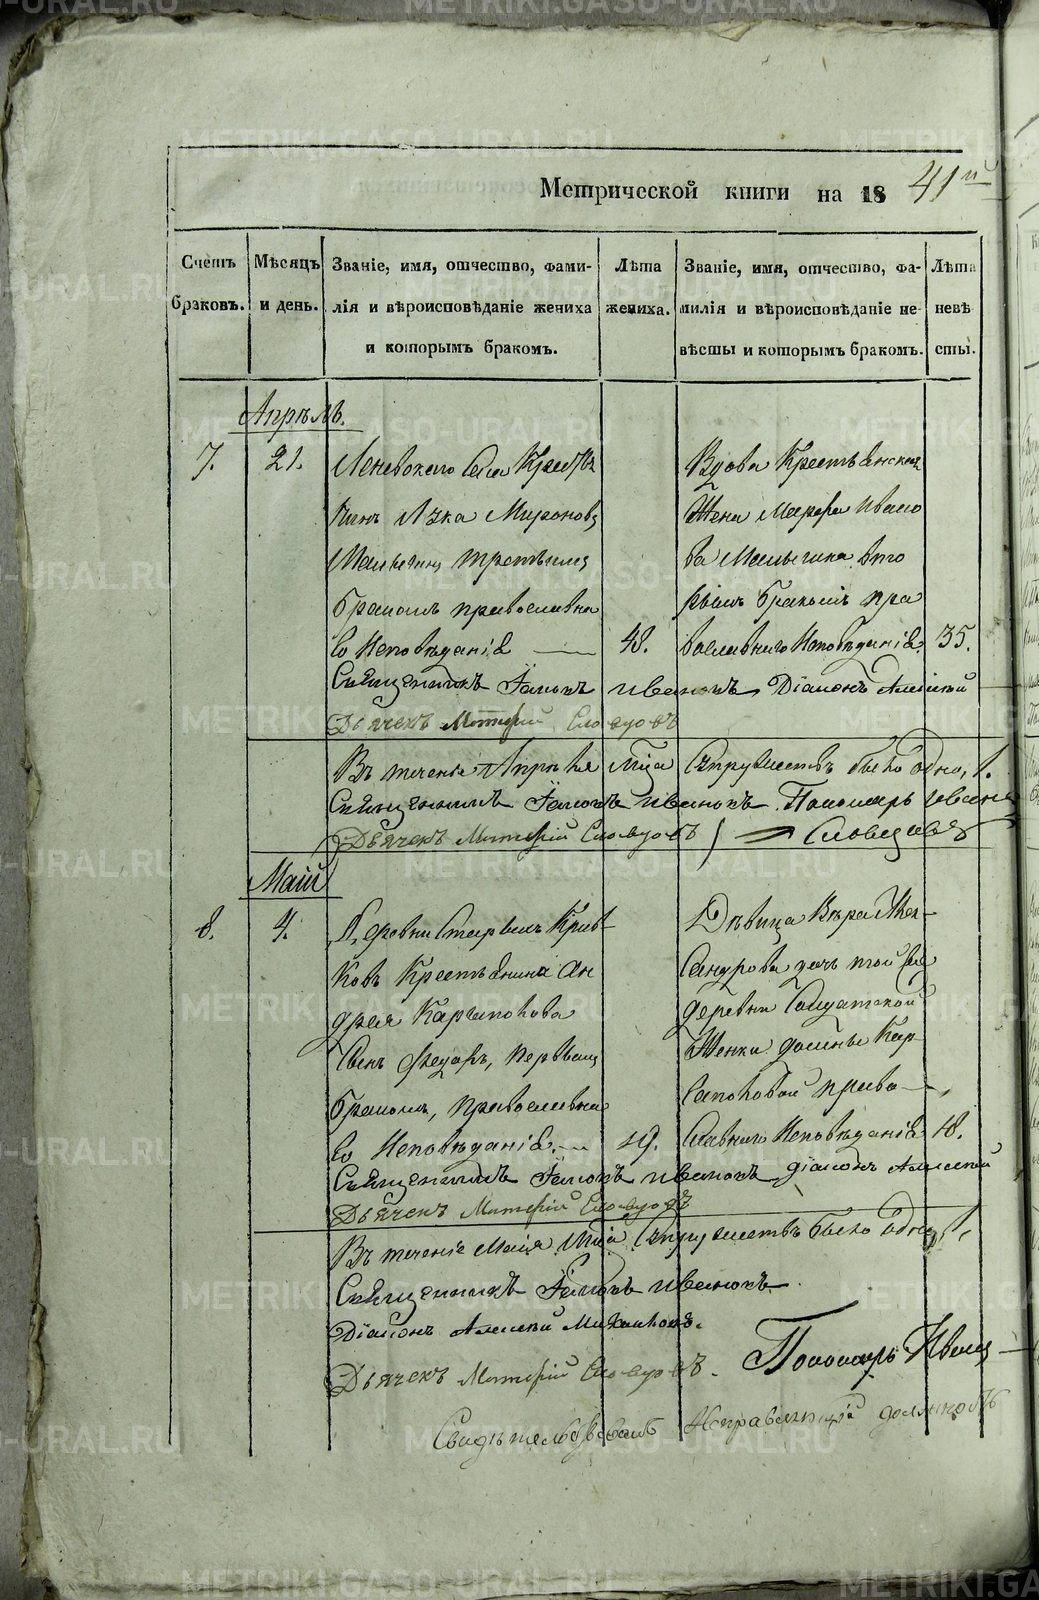 Метрической книги на 1841й
Счетъ браковъ.
Мѣсяцъ и день.
Званіе, имя, отчество, фамилія и вѣроисповѣданіе жениха и которымъ бракомъ.
Лѣта жениха.
Званіе, имя, отчество, фамилія и вѣроисповѣданіе невѣсты и которымъ бракомъ.
Лѣта невѣсты.
Апрѣль.
7.
21.
Леневского Села Кресть
янинъ Мироновъ
третьимъ
бракомъ православна
го Исповѣданія
48.
Вдова Крестьянская
Жена Марфа Ивано
ва вто
рымъ бракомъ пра
вославнаго Исповѣданія.
35.
Священникъ Іаковъ Ивановъ Діаконъ Алексѣй
Дьячекъ Словцовъ
Въ теченіе Апрѣля мца Супружествъ было одно, 1.
Священникъ Іаковъ Ивановъ. Пономарь Иванъ
Дьячекъ Словцовъ Словцовъ
Маій
8.
4.
Деревни Старыхъ Крив
ковъ Крестьянина Ан
дрея Карсыпокова
Сынъ Федоръ, первымъ
бракомъ, православна
го Исповѣданія.
19.
Дѣвица Вѣра Алек
сандрова дочь той же
деревни Солдатской
Женки Кар
саповой право
славнаго Исповѣданія
18.
Священникъ Іаковъ Ивановъ Діаконъ Алексѣй
Дьячекъ Словцовъ
Въ теченіе Маія мца Супружествъ было одно 1,
Священникъ Іаковъ Ивановъ.
Діаконъ Алексѣй Михайловъ.
Дьячекъ Словцовъ. Пономарь Иванъ
Свидѣтельствовалъ Исправляющій должность